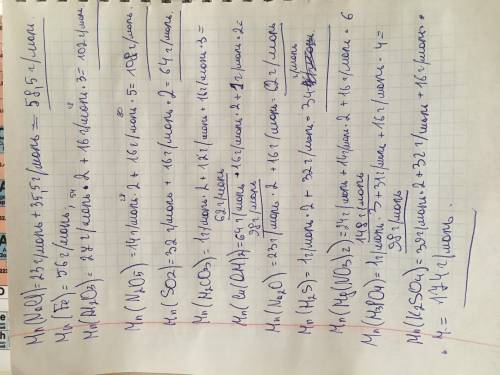 Mn(NaCl)=23г/моль+35,5г/моль=58,5г/моль
Mn(Fe)=56г/моль;
Mn(Al2O3)=27г/моль•2+16г/моль•3=102г/моль
54 48
Mn(N2O5)=14г/моль•2+16г/моль•5=108г/моль
28 80
Mn(SO2)=32г/моль+16г/моль•2=64г/моль
Mn(H2CO3)=1г/моль•2+12г/моль+16г/моль•3=
62г/моль
Mn(Cu(OH)2)=64г/моль+16г/моль•2+1г/моль•2=
98г/моль
Mn(Na2O)=23г/моль•2+16г/моль=62г/моль
Mn(H2S)=1г/моль•2+32г/моль=34г/моль
Mn(Mg(NO3)2)=24г/моль+14г/моль•2+16г/моль•6
148г/моль
Mn(H3PO4)=1г/моль•3+31г/моль+16г/моль•4=
98г/моль
Mn(K2SO4)=39г/моль•2+32г/моль+16г/моль•
•4=174г/моль.